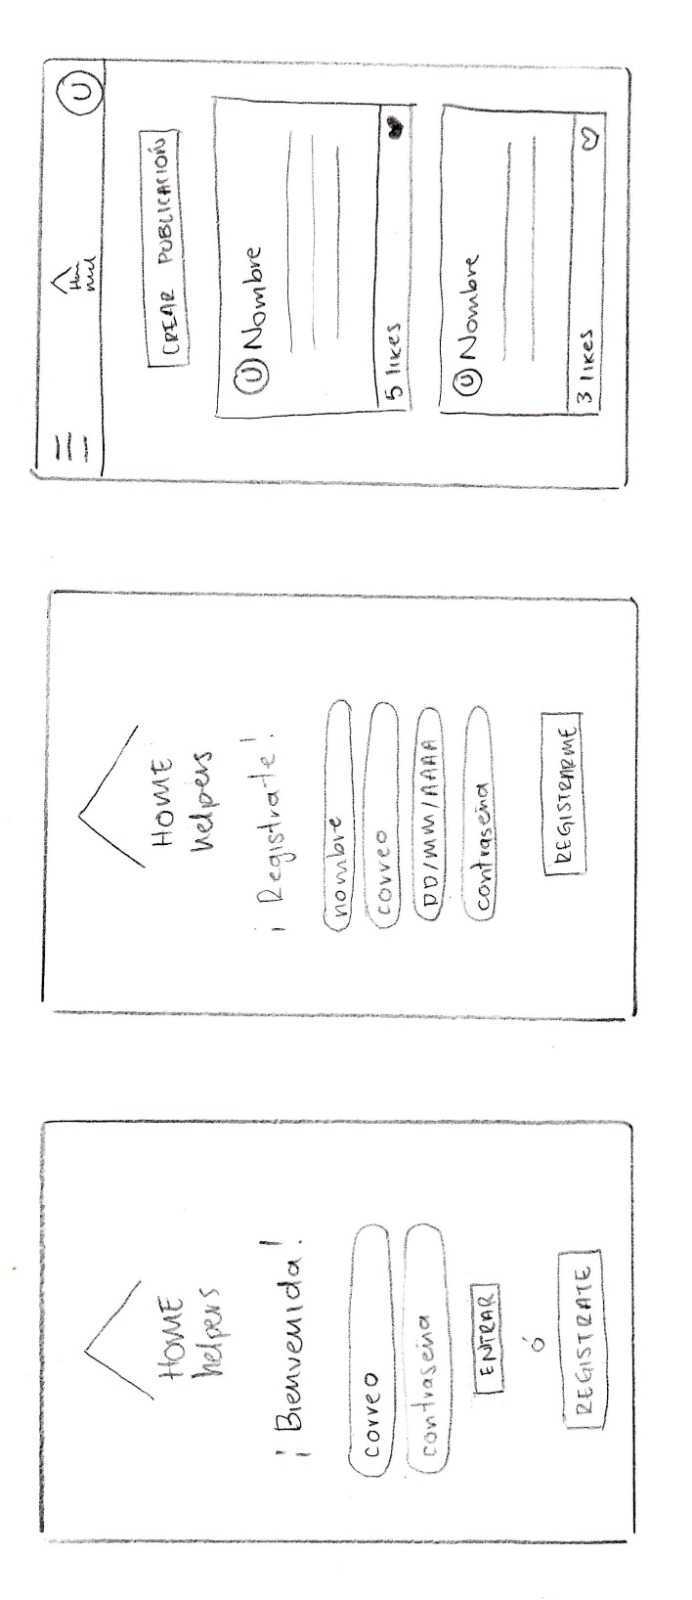 HOME
helpers
¡Bienvenida!
correo
contraseña
ENTRAR
ó
REGISTRATE
HOME
helpers
¡Registrate!
nombre
correo
DD/MM/AAAA
contraseña
REGISTRARME
U
CREAR PUBLICACIÓN
U Nombre
5 likes
U Nombre
3 likes